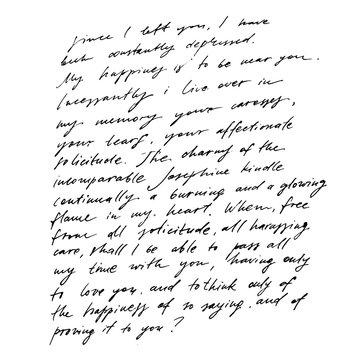 Since I left you, I have
but constantly depressed.
My happiness is to be near you.
Incessantly i live over in
my memory your caresses,
your tears, your affectionate
solicitude. The charms of the
incomparable Josephine kindle
continually a burning and a glowing
flame in my heart. When, free
from all solicitude, all harassing
care, shall I be able to pass all
my time with you, having only
to love you, and to think only of
the happiness of so saying, and of
proving it to you?